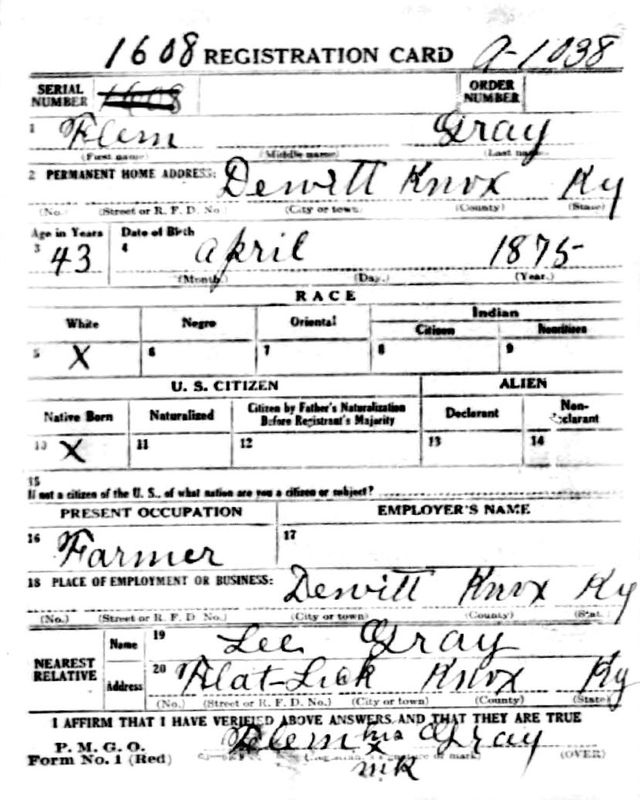 1608 REGISTRATION CARD A-1038
SERIAL NUMBER 1608 ORDER NUMBER
1 Flem Gray
(First name) (Middle name) (Last name)
2 PERMANENT HOME ADDRESS: Dewitt Knox Ky
(No.) (Street or R. F. D. No.) (City or town) (County) (State)
Age in Years Date of Birth
3 43 4 april 1875
(Month.) (Day.) (Year.)
RACE
White Negro Oriental Indian
Citizen Noncitizen
5 X 6 7 8 9
U. S. CITIZEN ALIEN
Native Born Naturalized Citizen by Father's Naturalization Before Registrant's Majority Declarant Non-declarant
10 X 11 12 13 14
15
If not a citizen of the U. S., of what nation are you a citizen or subject?
PRESENT OCCUPATION EMPLOYER'S NAME
16 Farmer 17
18 PLACE OF EMPLOYMENT OR BUSINESS: Dewitt Knox Ky
(No.) (Street or R. F. D. No.) (City or town) (County) (State)
NEAREST RELATIVE Name 19 Lee Gray
Address 20 Flat-Lick Knox Ky
(No.) (Street or R. F. D. No.) (City or town) (County) (State)
I AFFIRM THAT I HAVE VERIFIED ABOVE ANSWERS AND THAT THEY ARE TRUE
P. M. G. O.
Form No. 1 (Red) Flem his x mk Gray
(Registrant's signature or mark) (OVER)